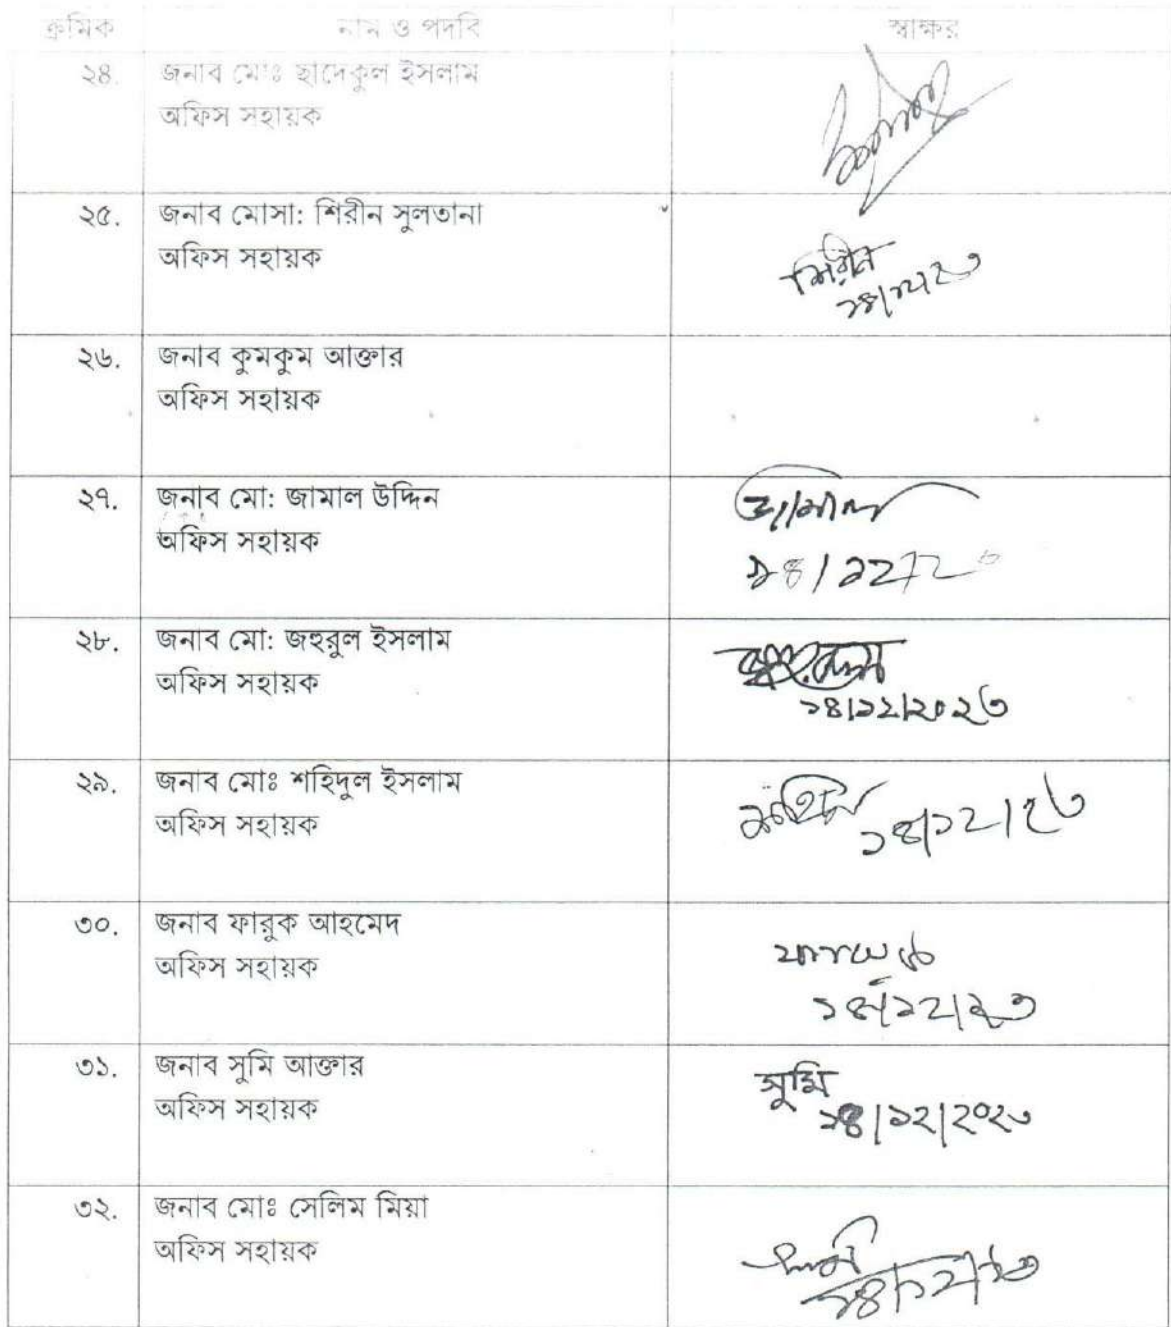 ক্রমিক নাম ও পদবি স্বাক্ষর
২৪. জনাব মোঃ ছাদেকুল ইসলাম
অফিস সহায়ক
২৫. জনাব মোসা: শিরীন সুলতানা
অফিস সহায়ক
শিরীন
১৪/১২/২৩
২৬. জনাব কুমকুম আক্তার
অফিস সহায়ক
২৭. জনাব মো: জামাল উদ্দিন
অফিস সহায়ক
জামাল
১৪/১২/২৩
২৮. জনাব মো: জহুরুল ইসলাম
অফিস সহায়ক
১৪/১২/২০২৩
২৯. জনাব মোঃ শহিদুল ইসলাম
অফিস সহায়ক
১৪/১২/২৩
৩০. জনাব ফারুক আহমেদ
অফিস সহায়ক
১৪/১২/২৩
৩১. জনাব সুমি আক্তার
অফিস সহায়ক
সুমি
১৪/১২/২০২৩
৩২. জনাব মোঃ সেলিম মিয়া
অফিস সহায়ক
১৪/১২/২৩